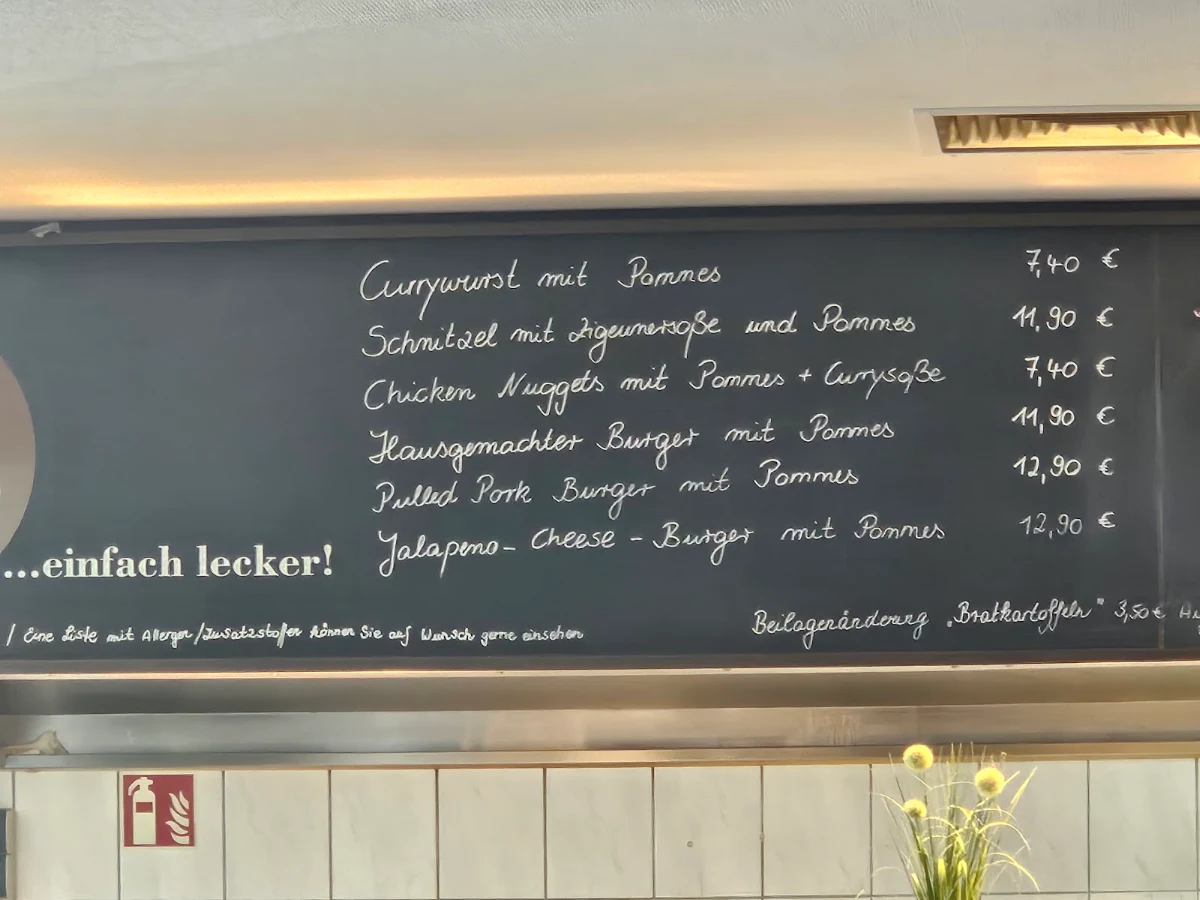 Currywurst mit Pommes 7,40 €
Schnitzel mit Zigeunersoße und Pommes 11,90 €
Chicken Nuggets mit Pommes + Currysoße 7,40 €
Hausgemachter Burger mit Pommes 11,90 €
Pulled Pork Burger mit Pommes 12,90 €
Jalapeno- Cheese - Burger mit Pommes 12,90 €
...einfach lecker!
/ Eine Liste mit Allergen/Zusatzstoffen können Sie auf Wunsch gerne einsehen
Beilagenänderung „Bratkartoffeln" 3,50 €